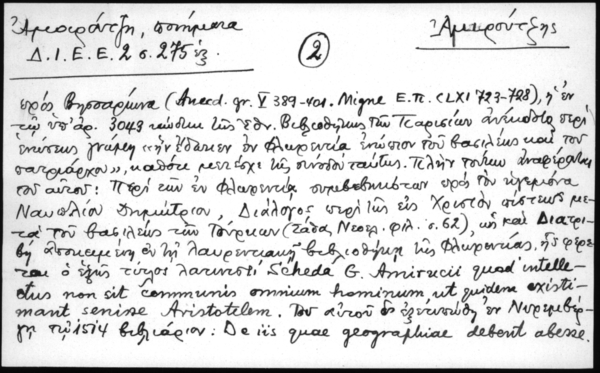 Ἀμοιρούτζη, ποιήματα
Δ.Ι.Ε.Ε. 2 σ. 275 ἑξ.
2
Ἀμιρούτζης
πρὸς Βησσαρίωνα (Anecd. gr. V 389-401. Migne Ε.π. CLXI 723-728), ἡ ἐν
τῷ ὑπ' ἀρ. 3043 κώδικι τῆς ἐθν. Βιβλιοθήκης τῶν Παρισίων ἀνέκδοτος περὶ
ἑνώσεως γνώμη «ἣν ἔδωκεν ἐν Φλωρεντίᾳ ἐνώπιον τοῦ βασιλέως καὶ τοῦ
πατριάρχου», καθότι μετέσχε τῆς συνόδου ταύτης. Πλὴν τούτων ἀναφέρονται
τοῦ αὐτοῦ: Περὶ τῶν ἐν Φλωρεντίᾳ συμβεβηκότων πρὸς τὸν ἡγεμόνα
Ναυπλίου Δημήτριον, Διάλογος περὶ τῆς εἰς Χριστὸν πίστεως με-
τὰ τοῦ βασιλέως τῶν Τούρκων (Σάθα, Νεοελ. φιλ. σ. 62), ὡς καὶ Διατρι-
βὴ ἀποκειμένη ἐν τῇ Λαυρεντιακῇ βιβλιοθήκῃ τῆς Φλωρεντίας, ἧς φέρε-
ται ὁ ἑξῆς τίτλος λατινιστί Scheda G. Amirucii quod intelle-
ctus non sit communis omnium hominum, ut quidem existi-
mant sensisse Aristotelem. Τοῦ αὐτοῦ δὲ ἐξετυπώθη ἐν Νυρεμβέρ-
γῃ τῷ 1514 βιβλιάριον: De iis quae geographiae debent abesse.